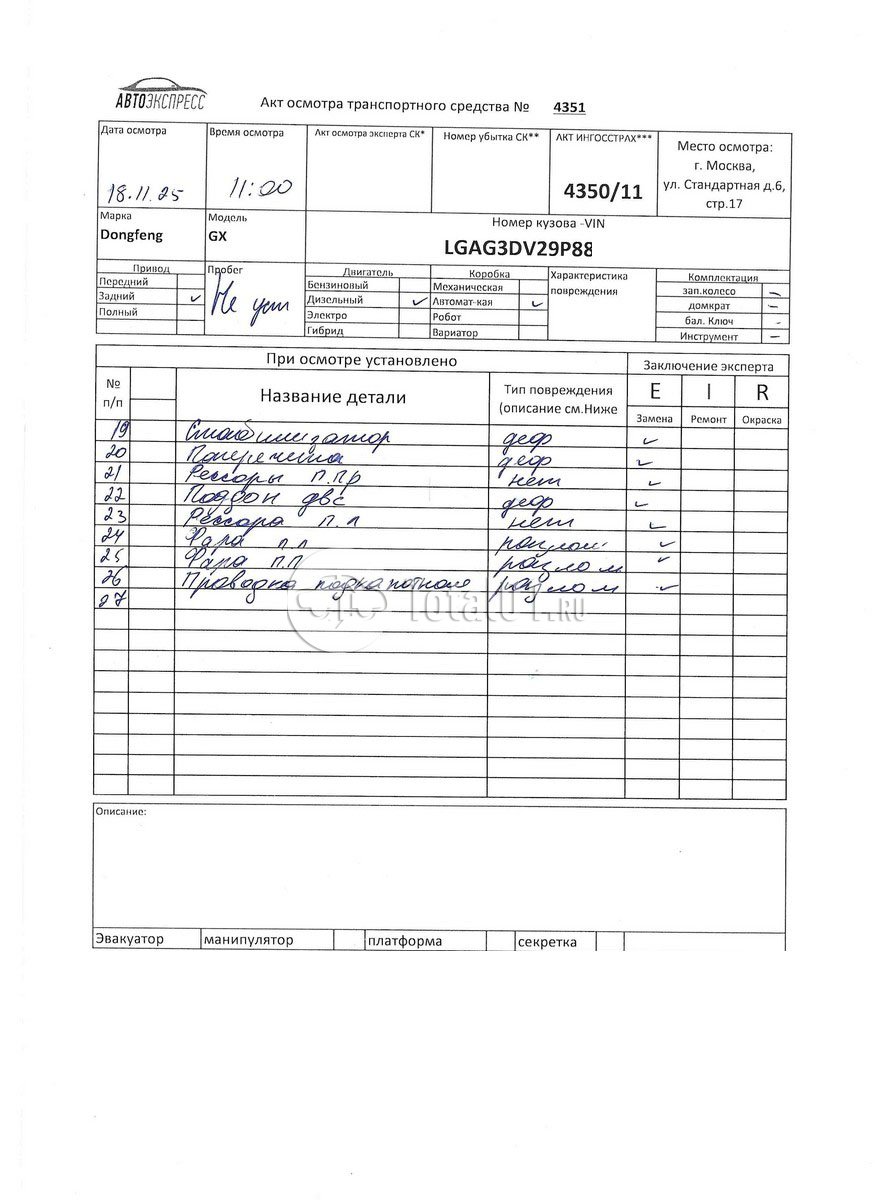 АВТОЭКСПРЕСС
Акт осмотра транспортного средства № 4351
Дата осмотра
18.11.25
Время осмотра
11:00
Акт осмотра эксперта СК*
Номер убытка СК**
АКТ ИНГОССТРАХ***
4350/11
Место осмотра:
г. Москва,
ул. Стандартная д.6,
стр.17
Марка
Dongfeng
Модель
GX
Номер кузова -VIN
LGAG3DV29P88
Привод
Передний
Задний ✓
Полный
Пробег
Не уст
Двигатель
Бензиновый
Дизельный ✓
Электро
Гибрид
Коробка
Механическая
Автомат-кая ✓
Робот
Вариатор
Характеристика
повреждения
Комплектация
зап.колесо –
домкрат –
бал. Ключ -
Инструмент –
При осмотре установлено
Заключение эксперта
№
п/п
Название детали
Тип повреждения
(описание см.Ниже
E I R
Замена Ремонт Окраска
19 Стабилизатор деф ✓
20 Поперечина деф ✓
21 Рессоры п.пр нет ✓
22 Поддон двс деф ✓
23 Рессора п.л нет ✓
24 Фара п.л разлом ✓
25 Фара п.п разлом ✓
26 Проводка подкапотная разлом ✓
27
Total01.RU
Описание:
Эвакуатор манипулятор платформа секретка